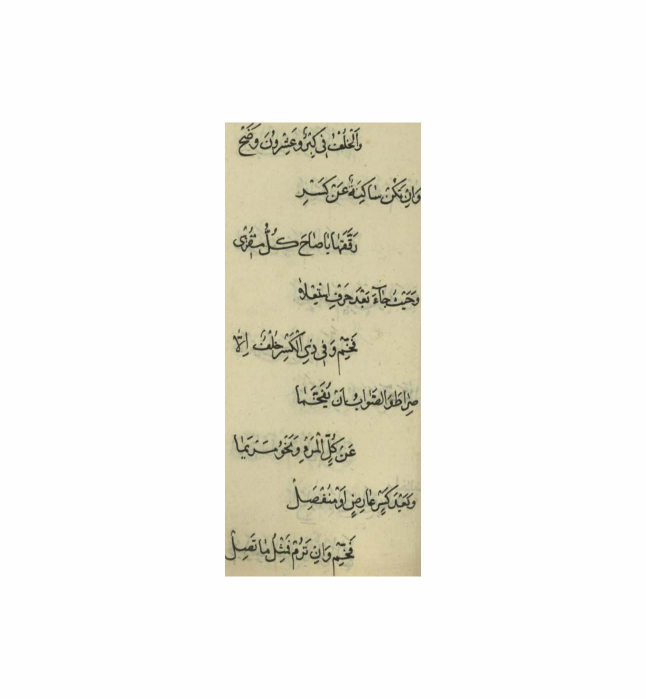 وَالْخُلْفُ فِي كِبْرٌ وَعِشْرُونَ وَضَحْ
وَاِنْ تَكُنْ سَاكِنَةً عَنْ كَسْرِ
رَقِّقْهَا يَا صَاحِ كُلُّ مُقْرِى
وَحَيْثُ جَآءَ بَعْدُ حَرْفُ اسْتِعْلَا
فَخِّمْ وَفِي ذِي الْكَسْرِ خُلْفٌ اِلَّا
صِرَاطَ وَالصَّوَابُ اَنْ يُفَخَّمَا
عَنْ كُلٍّ الْمَرْءِ وَنَحْوُ مَرْيَمَا
وَبَعْدَ كَسْرٍ عَارِضٍ اَوْ مُنْفَصِلْ
فَخِّمْ وَاِنْ تَرُمْ فَمِثْلُ مَا تَصِلْ